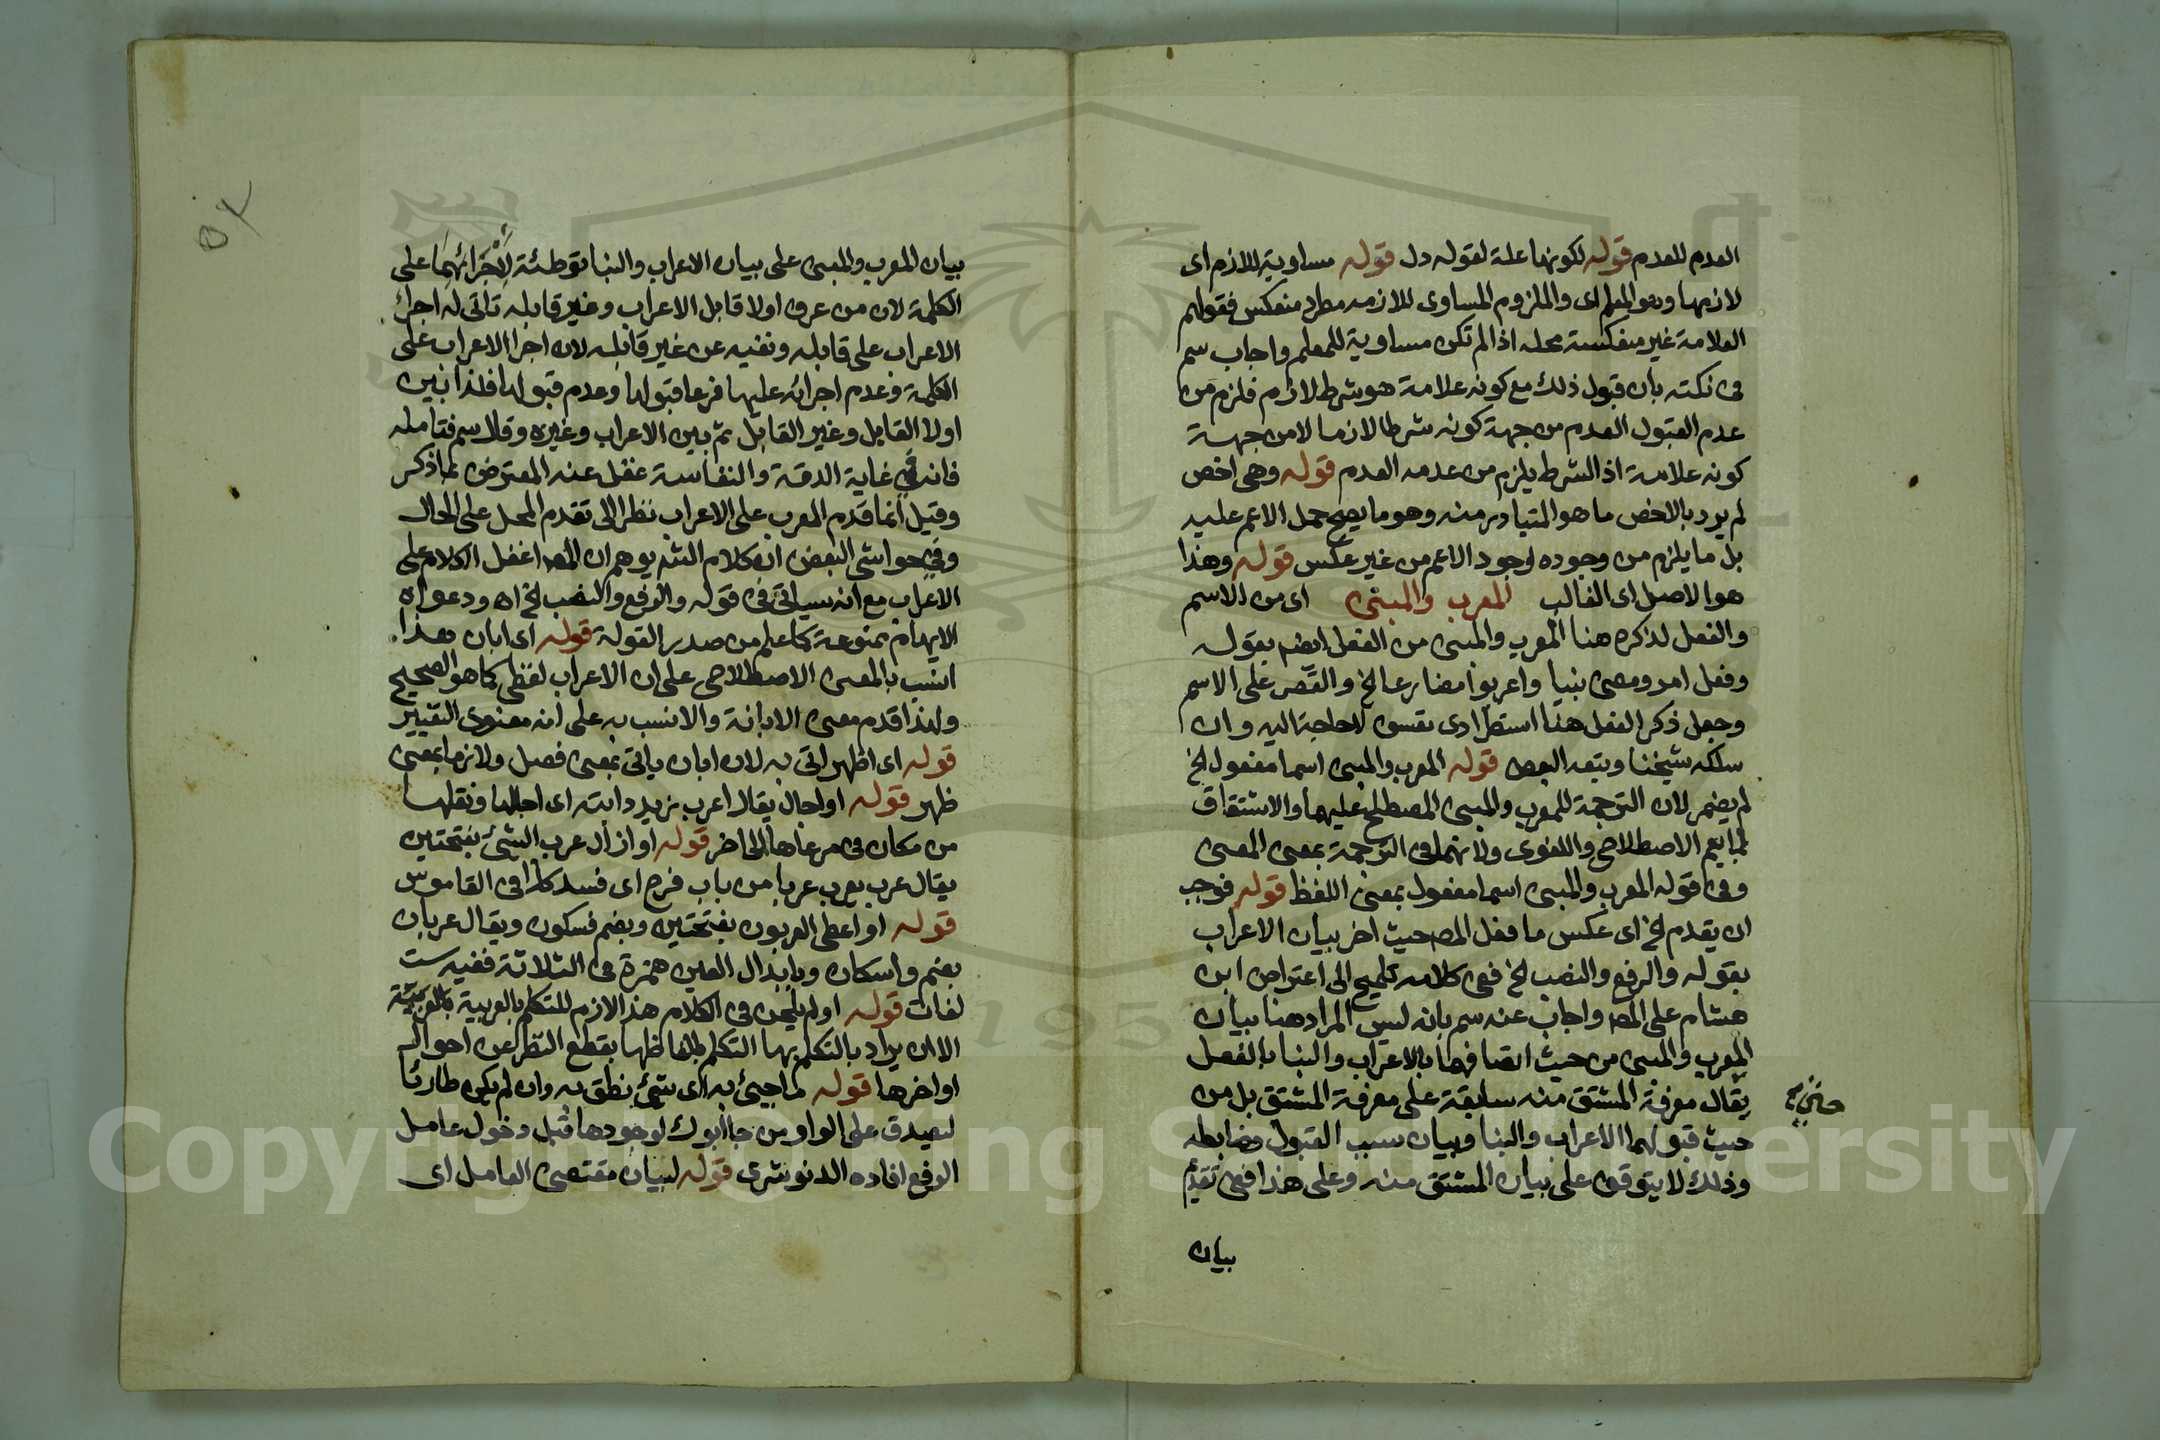 العدم للعدم قوله لكونها علة لقوله دل قوله مساوية للازم اى
لازمها وهو المعلم اى والملزوم المساوى للازمه مطرد منعكس فقولهم
العلامة غير منعكسة محله اذا لم تكن مساوية للمعلم واجاب سم
فى نكته بان قبول ذلك مع كونه علامة هو شرط لازم فلزم من
عدم القبول العدم من جهة كونه شرطا لازما لا من جهة
كونه علامة اذ الشرط يلزم من عدمه العدم قوله وهى اخص
لم يرد بالاخص ما هو المتبادر منه وهو ما يصح حمل الاعم عليه
بل ما يلزم من وجوده وجود الاعم من غير عكس قوله وهذا
هو الاصل اى الغالب المعرب والمبنى اى من الاسم
والفعل لذكره هنا المعرب والمبنى من الفعل ايضم بقوله
وفعل امر ومضى بنيا واعربوا مضارعا الخ والقصر على الاسم
وجعل ذكر الفعل هنا استطرادى تعسف لا حاجة اليه وان
سلكه شيخنا وتبعه البعض قوله المعرب والمبنى اسما مفعول الخ
لم يضمر لان الترجمة للمعرب والمبنى المصطلح عليهما والاشتقاق
لما يعم الاصطلاحى واللغوى ولانهما فى الترجمة بمعنى المعنى
وفى قوله المعرب والمبنى اسما مفعول بمعنى اللفظ قوله فوجب
ان يقدم الخ اى عكس ما فعل المص حيث اخر بيان الاعراب
بقوله والرفع والنصب الخ ففى كلامه تلميح الى اعتراض ابن
هشام على المص واجاب عنه سم بانه ليس المراد هنا بيان
المعرب والمبنى من حيث اتصافهما بالاعراب والبنا بالفعل
يقال معرفة المشتق منه سابقة على معرفة المشتق بل من
حيث قبولهما الاعراب والبنا وبيان سبب القبول وضابطه
وذلك لا يتوقف على بيان المشتق منه وعلى هذا ففى تقديم
بيان
بيان المعرب والمبنى على بيان الاعراب والبنا توطئة لِاِجْرَائِهِمَا على
الكلمة لان من عرف اولا قابل الاعراب وغير قابله تاتى له اجراء
الاعراب على قابله ونفيه عن غير قابله لان اجرا الاعراب على
الكلمة وعدم اجرائه عليها فرعا قبولها وعدم قبولها فلذا بين
اولا القابل وغير القابل ثم بين الاعراب وغيره وقال سم فتامله
فانه فى غاية الدقة والنفاسة غفل عنه المعترض بما ذكر
وقيل انما قدم المعرب على الاعراب نظرا الى تقدم المحل على الحال
وفى حواشى البعض ان كلام الش يوهم ان المص اغفل الكلام على
الاعراب مع انه سياتى فى قوله والرفع والنصب الخ اه ودعواه
الايهام ممنوعة كما علم من صدر القولة قوله اى ابان هذا
انسب بالمعنى الاصطلاحى على ان الاعراب لفظى كما هو الصحيح
ولهذا قدم معنى الابانة والانسب به على انه معنوى التغيير
قوله اى اظهر اتى به لان ابان ياتى بمعنى فصل ولازما بمعنى
ظهر قوله او اجال يقال اعرب زيد دابته اى اجالها ونقلها
من مكان فى مرعاها الى اخر قوله او ازال عرب الشئ بفتحتين
يقال عرب يعرب عربا من باب فرح اى فسد كذا فى القاموس
قوله او اعطى العربون بفتحتين وبضم فسكون ويقال عربان
بضم واسكان وبابدال العين همزة فى الثلاثة ففيه ست
لغات قوله او لم يلحن فى الكلام هذا لازم للتكلم بالعربية
الا ان يراد بالتكلم بها التكلم بالفاظها بقطع النظر عن احوال
اواخرها قوله ما جيئ به اى شيئ نطق به وان لم يكن طارئا
ليصدق على الواو من جا ابوك لوجودها قبل دخول عامل
الرفع افاده الدنوشرى قوله لبيان مقتضى العامل اى
Copyright © King Saud University
1957